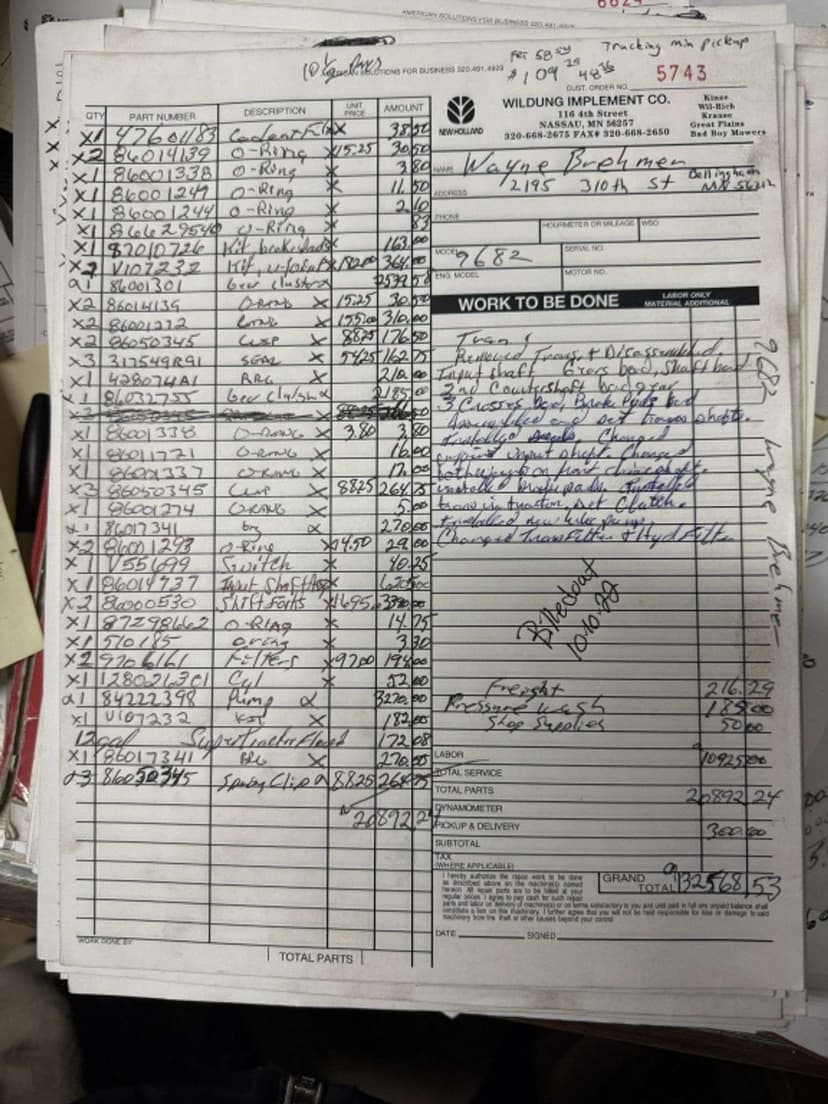 AMERICAN SOLUTIONS FOR BUSINESS 320.491.4929
SOLUTIONS FOR BUSINESS 320.491.4929
Trucking min pickup
$109
CUST. ORDER NO.
5743
NEW HOLLAND
WILDUNG IMPLEMENT CO.
116 4th Street
NASSAU, MN 56257
320-668-2675 FAX# 320-668-2650
Kinze
Wil-Rich
Krause
Great Plains
Bad Boy Mowers
QTY PART NUMBER DESCRIPTION UNIT PRICE AMOUNT
x1 47601183 Coolant Fl x 38.50
x2 86014139 O-Ring x 15.25 30.50
x1 86001338 O-Ring x 3.80
x1 86001247 O-Ring x 11.50
x1 86001244 O-Ring x 2.10
x1 86629540 O-Ring x 83
x1 87010726 Kit brake pads x 163.00
x2 V107232 Kit, u-joint x 182.00 364.00
1 86001301 Gear cluster 2539.50
x2 86014139 O-RING x 15.25 30.50
x2 86001272 x 155.00 310.00
x2 86050345 CLIP x 88.25 176.50
x3 317549R91 SEAL x 54.25 162.75
x1 428074A1 BRG x 210.00
x1 86032755 Gear 2185.00
x1 86001338 O-RING x 3.80 3.80
x1 86011721 O-RING x 16.00
x1 86001337 O-RING x 17.00
x3 86050345 CLIP x 88.25 264.75
x1 86001274 O-RING x 5.00
1 86017341 brg 270.00
x2 86001293 O-Ring x 14.50 29.00
x1 V55699 Switch x 40.25
x1 86014737 Input Shaft x 6205.00
x2 86000530 Shift Forks x 1695. 3390.00
x1 87298662 O-Ring x 14.75
x1 510185 oring x 3.30
x2 9706161 Filters x 97.00 194.00
x1 128021301 Cyl x 52.00
1 84222398 Pump 3270.00
x1 V107232 Kit x 182.00
12 gal Super Tractor Fluid 172.08
x1 86017341 BRG x 270.00
3 86050345 Spring Clip 88.25 264.75
20892.24
WORK DONE BY
TOTAL PARTS
NAME Wayne Brehmer
ADDRESS 2195 310th St Bellingham MN 56212
PHONE
HOURMETER OR MILEAGE WSO
MODEL 9682 SERIAL NO.
ENG. MODEL MOTOR NO.
WORK TO BE DONE LABOR ONLY MATERIAL ADDITIONAL
Removed Trans. + Disassembled.
Input shaft Gears bad, Shaft bad
2nd Countershaft bad gear
3 Crosses bad, Brake Pads bad
Installed seals, Changed
input shaft. Changed
installed brake pads. Installed
trans in tractor, Set Clutch.
Installed new hyd pump
Changed Trans Filter + Hyd Filter
9682 Wayne Brehmer
Billed out
10-10-22
Freight 216.29
Pressure wash 185.00
Shop Supplies 50.00
LABOR 10925.00
TOTAL SERVICE
TOTAL PARTS 20892.24
DYNAMOMETER
PICKUP & DELIVERY 300.00
SUBTOTAL
TAX
(WHERE APPLICABLE)
GRAND TOTAL 32568.53
I hereby authorize the repair work to be done
as described above on the machine(s) named
hereon. All repair parts are to be billed at your
regular prices. I agree to pay cash for such repair
parts and labor on delivery of machine(s) or on terms satisfactory to you and until paid in full any unpaid balance shall
constitute a lien on this machinery. I further agree that you will not be held responsible for loss or damage to said
machinery from fire theft or other causes beyond your control
DATE SIGNED